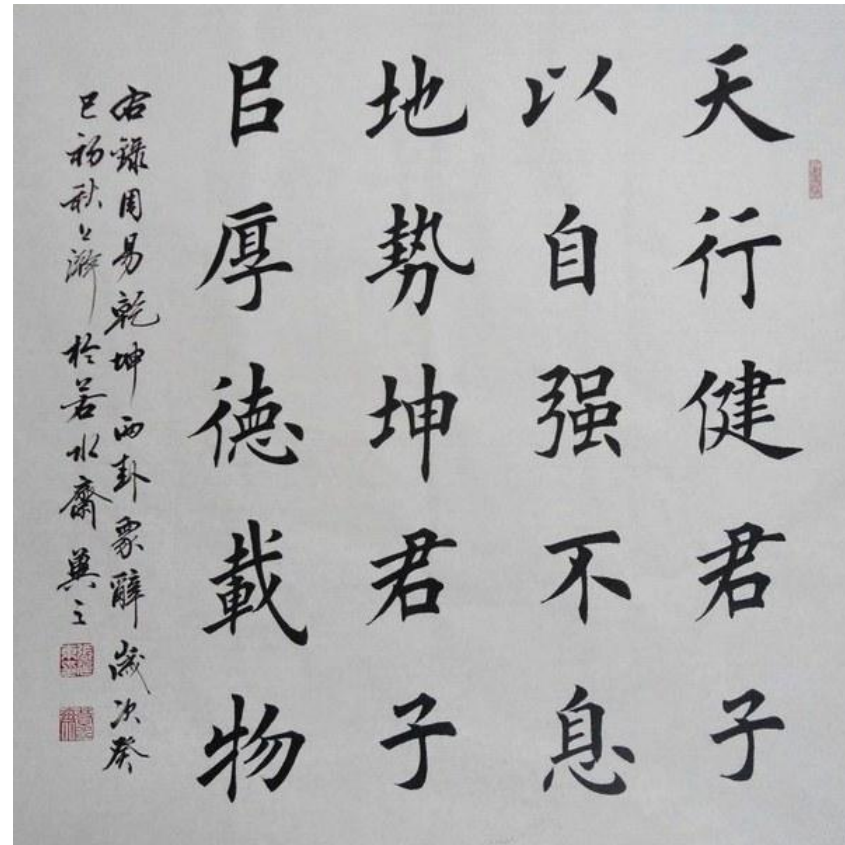 天行健君子
以自强不息
地勢坤君子
㠯厚德載物
右錄周易乾坤兩卦象辭歲次癸
巳初秋上澣於若水齋冀之